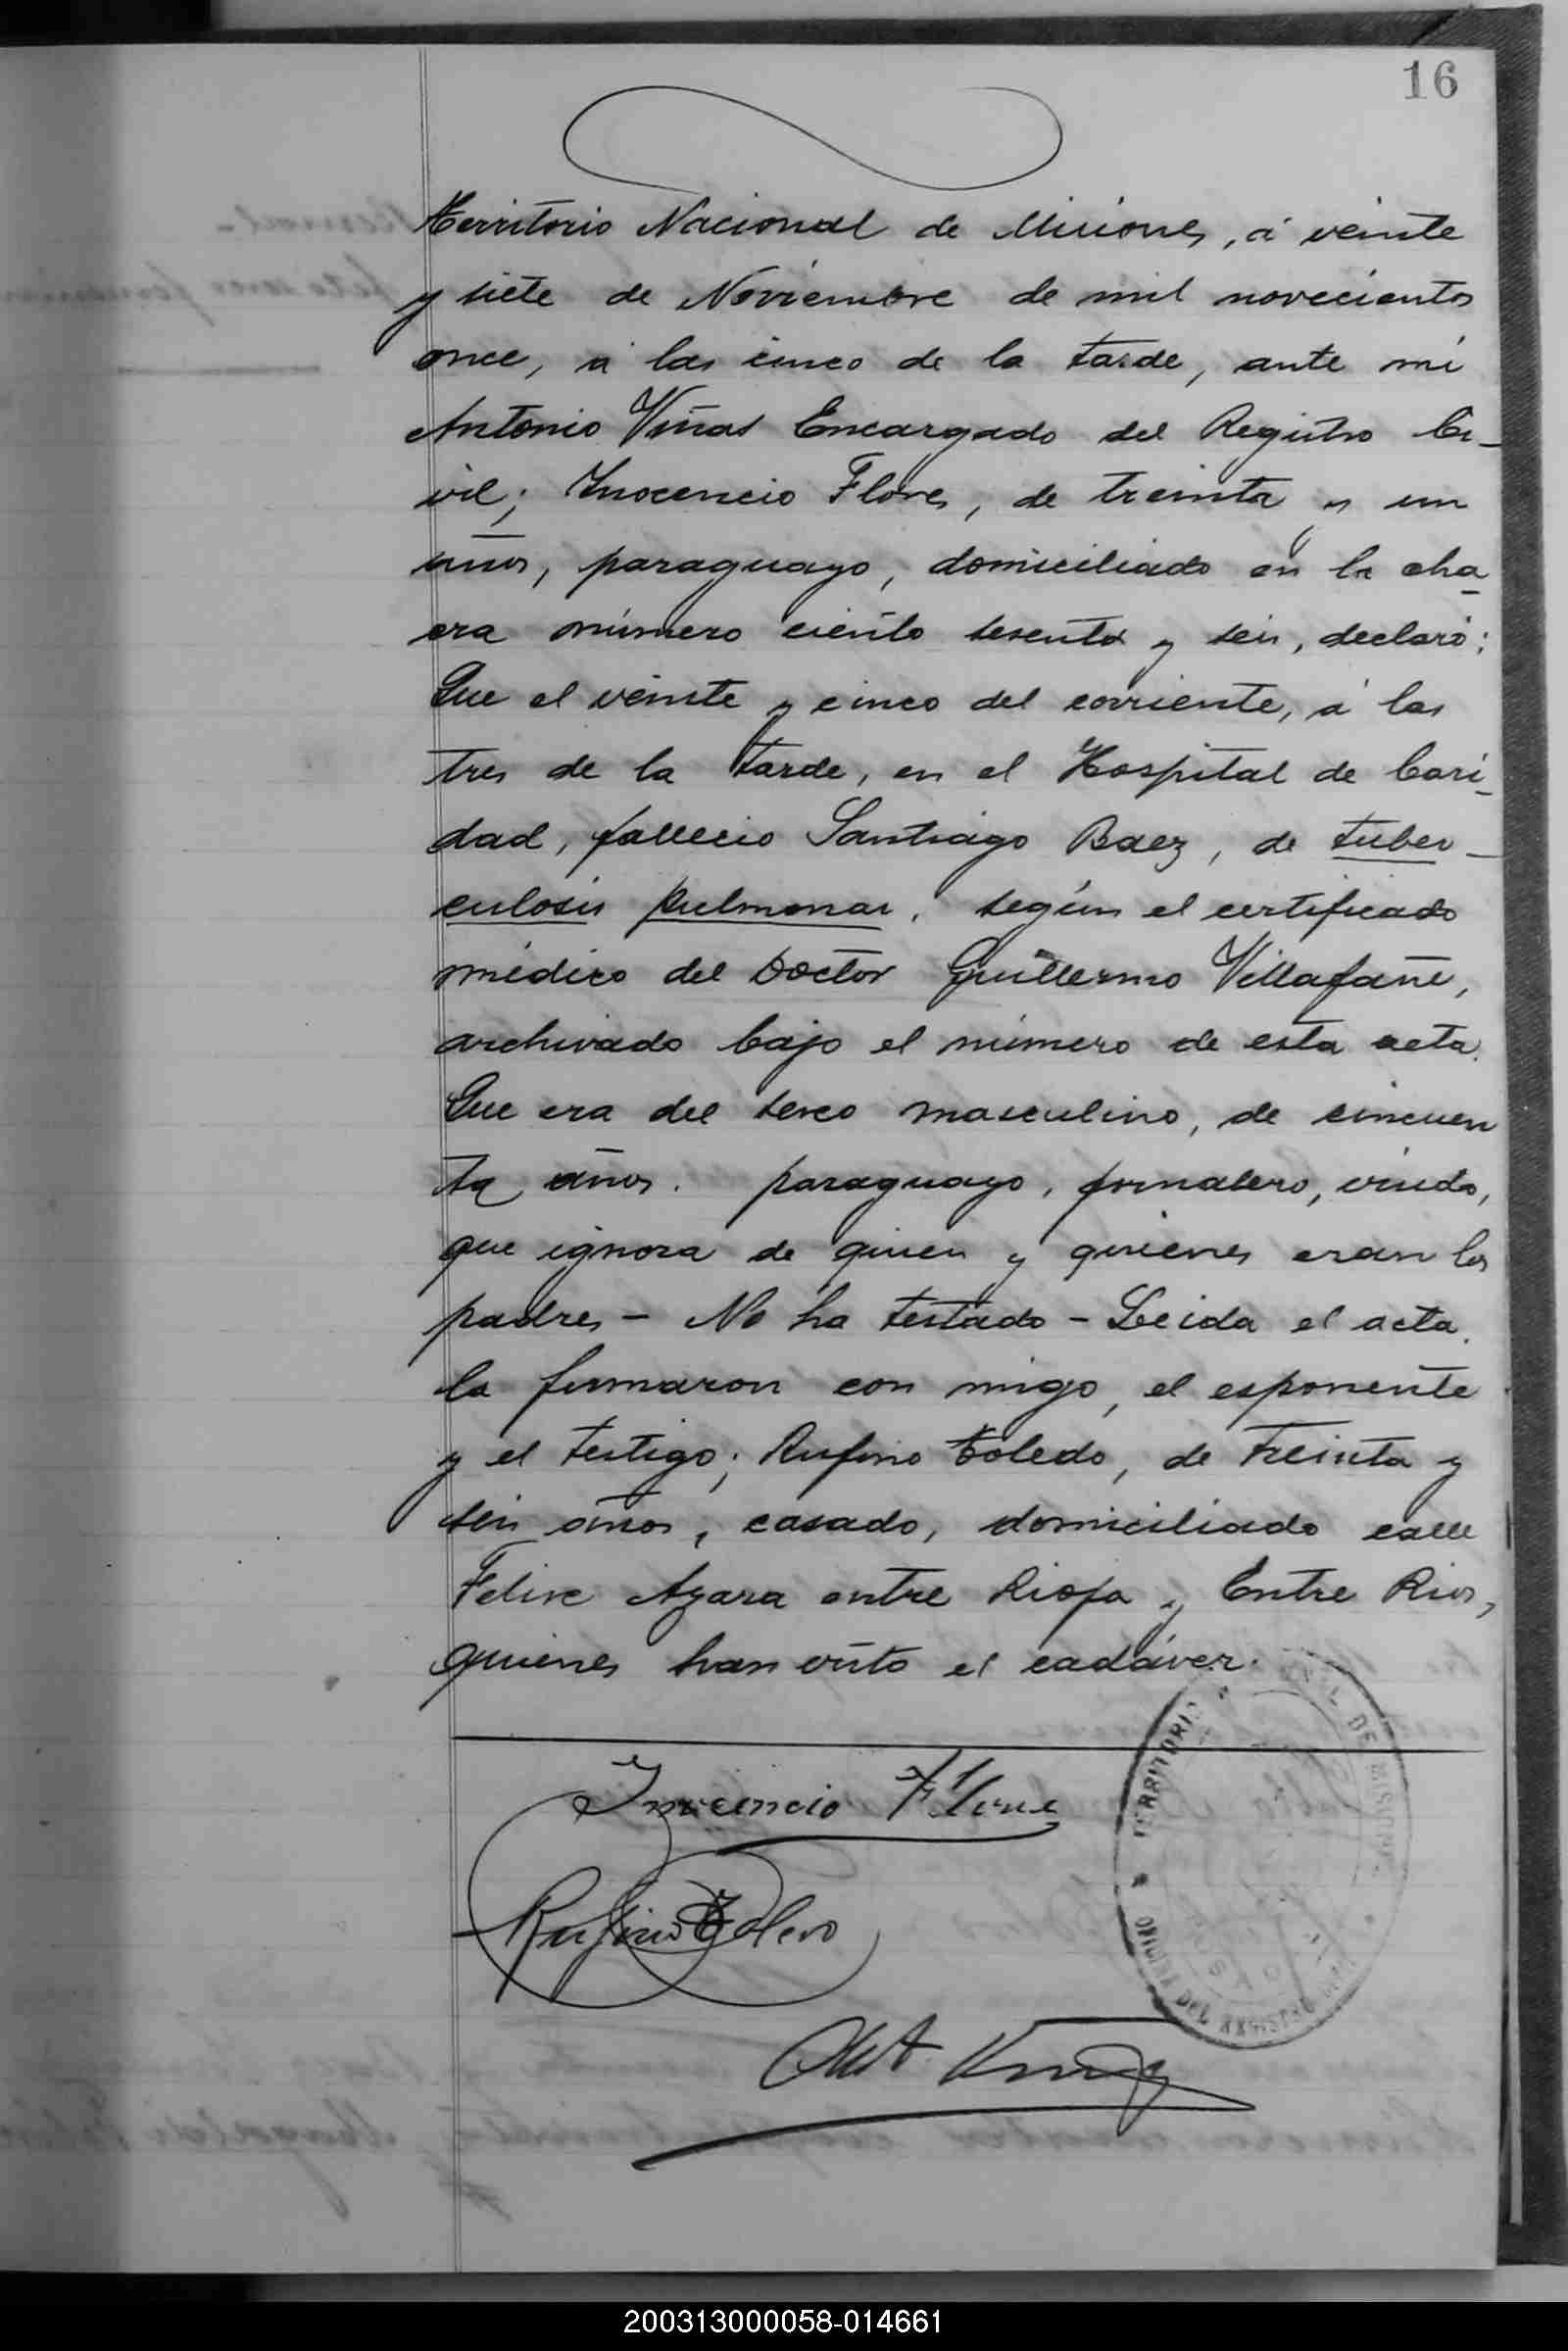 16
Territorio Nacional de Misiones, á veinte
y siete de Noviembre de mil novecientos
once, á las cinco de la tarde, ante mi
Antonio Viñas Encargado del Registro Ci-
vil; Inocencio Flores, de treinta y un
años, paraguayo, domiciliado en la cha-
cra número ciento sesenta y seis, declaró:
Que el veinte y cinco del corriente, á las
tres de la tarde, en el Hospital de Cari-
dad, fallecio Santiago Baez, de tuber-
culosis pulmonar, según el certificado
médico del Doctor Guillermo Villafañe,
archivado bajo el número de esta acta.
Que era del sexo masculino, de cincuen
ta años. paraguayo, jornalero, viudo,
que ignora de quien y quienes eran los
padres - No ha testado - Leida el acta.
la firmaron con migo, el esponente
y el testigo; Rufino Toledo, de treinta y
seis años, casado, domiciliado calle
Felix Azara entre Rioja y Entre Rios,
quienes han visto el cadáver.
Inocencio Flores
Rufino Toledo
TERRITORIO DE MISIONES
OFICINA DEL REGISTRO
200313000058-014661